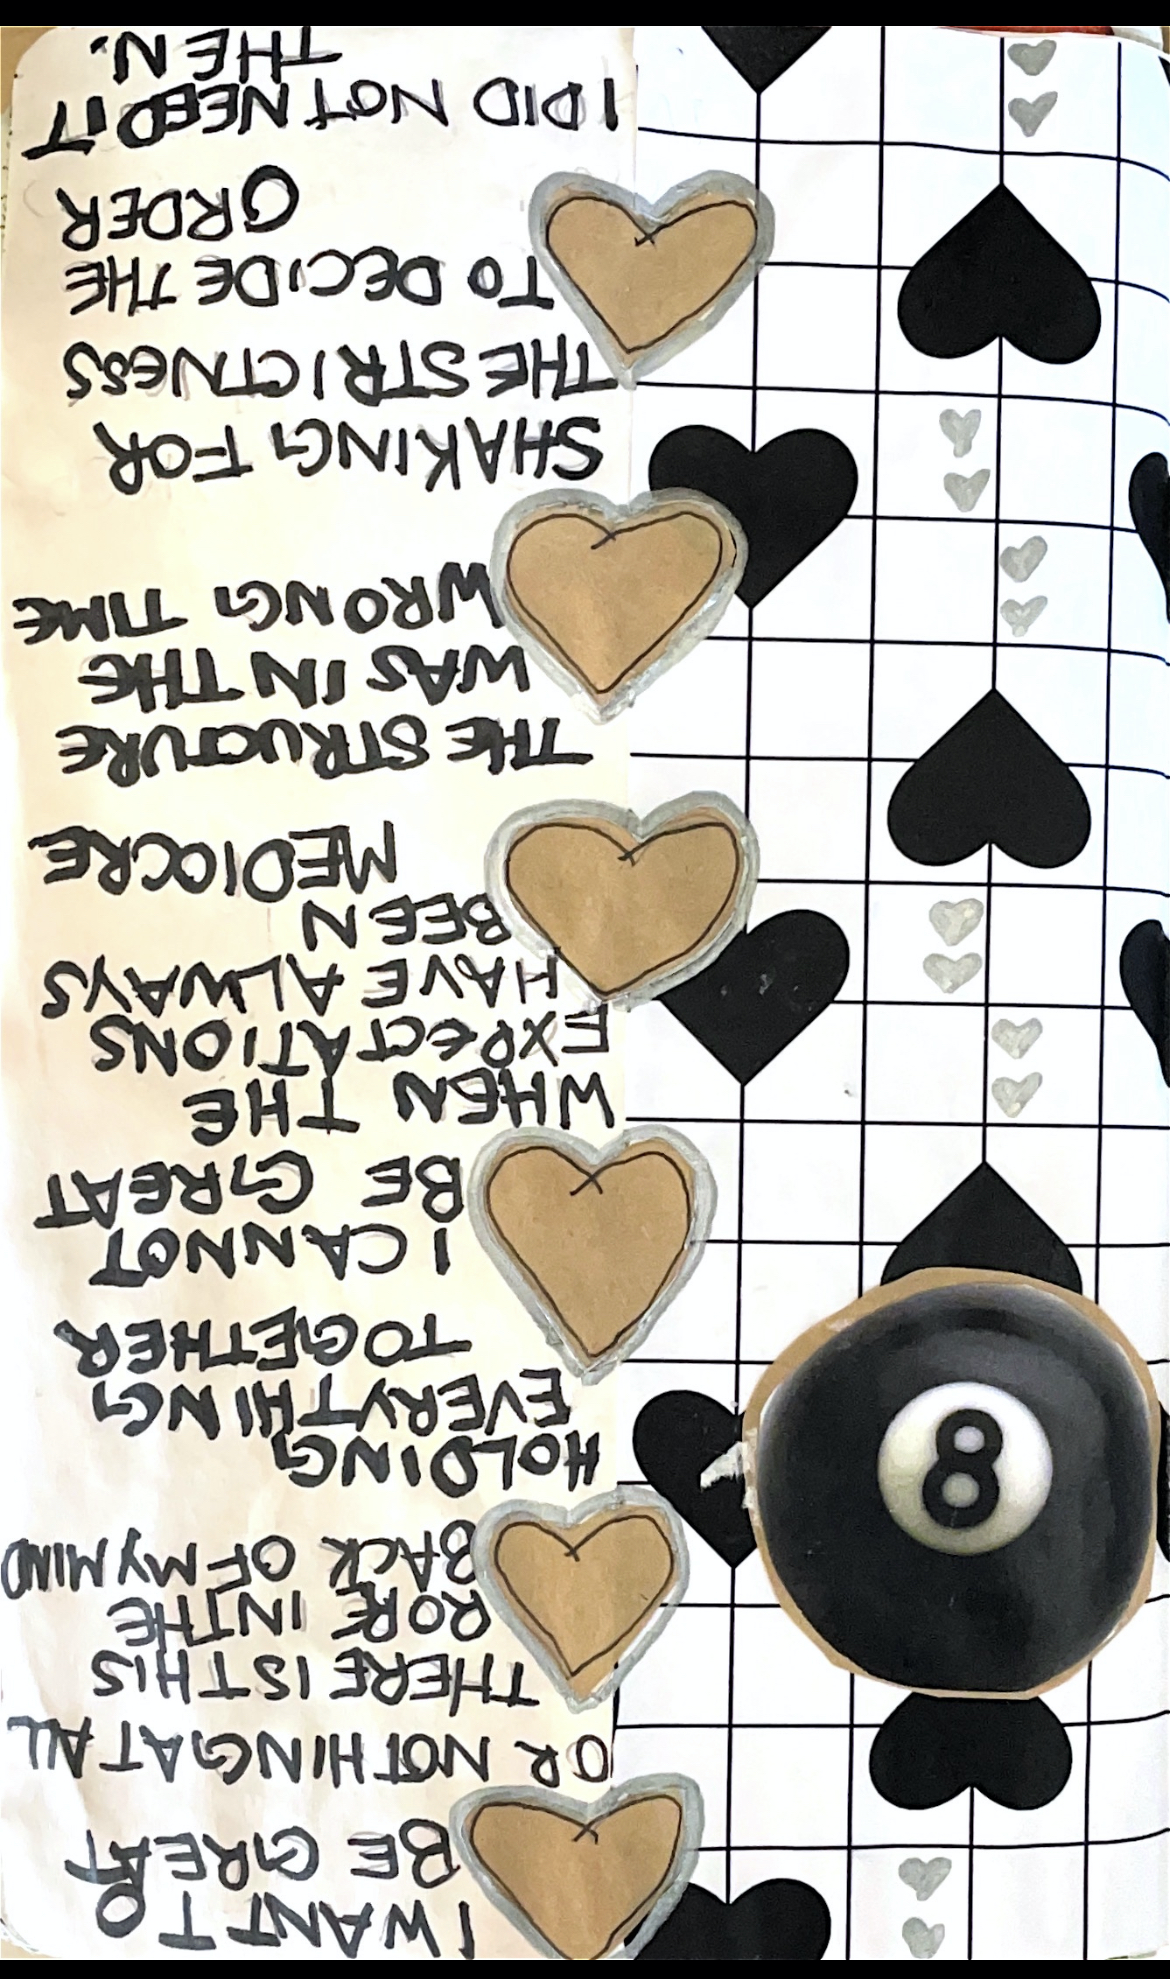 I WANT TO
BE GREAT
OR NOTHING AT ALL
THERE IS THIS
RORE IN THE
BACK OF MY MIND
HOLDING
EVERYTHING
TOGETHER
I CANNOT
BE GREAT
WHEN THE
EXPECTATIONS
HAVE ALWAYS
BEEN
MEDIOCRE
THE STRUCTURE
WAS IN THE
WRONG TIME
SHAKING FOR
THE STRICTNESS
TO DECIDE THE
ORDER
I DID NOT NEED IT
THEN.
8